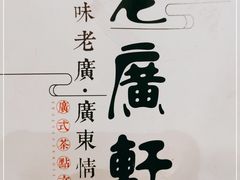 老廣軒
味老廣·廣東情
廣式茶點